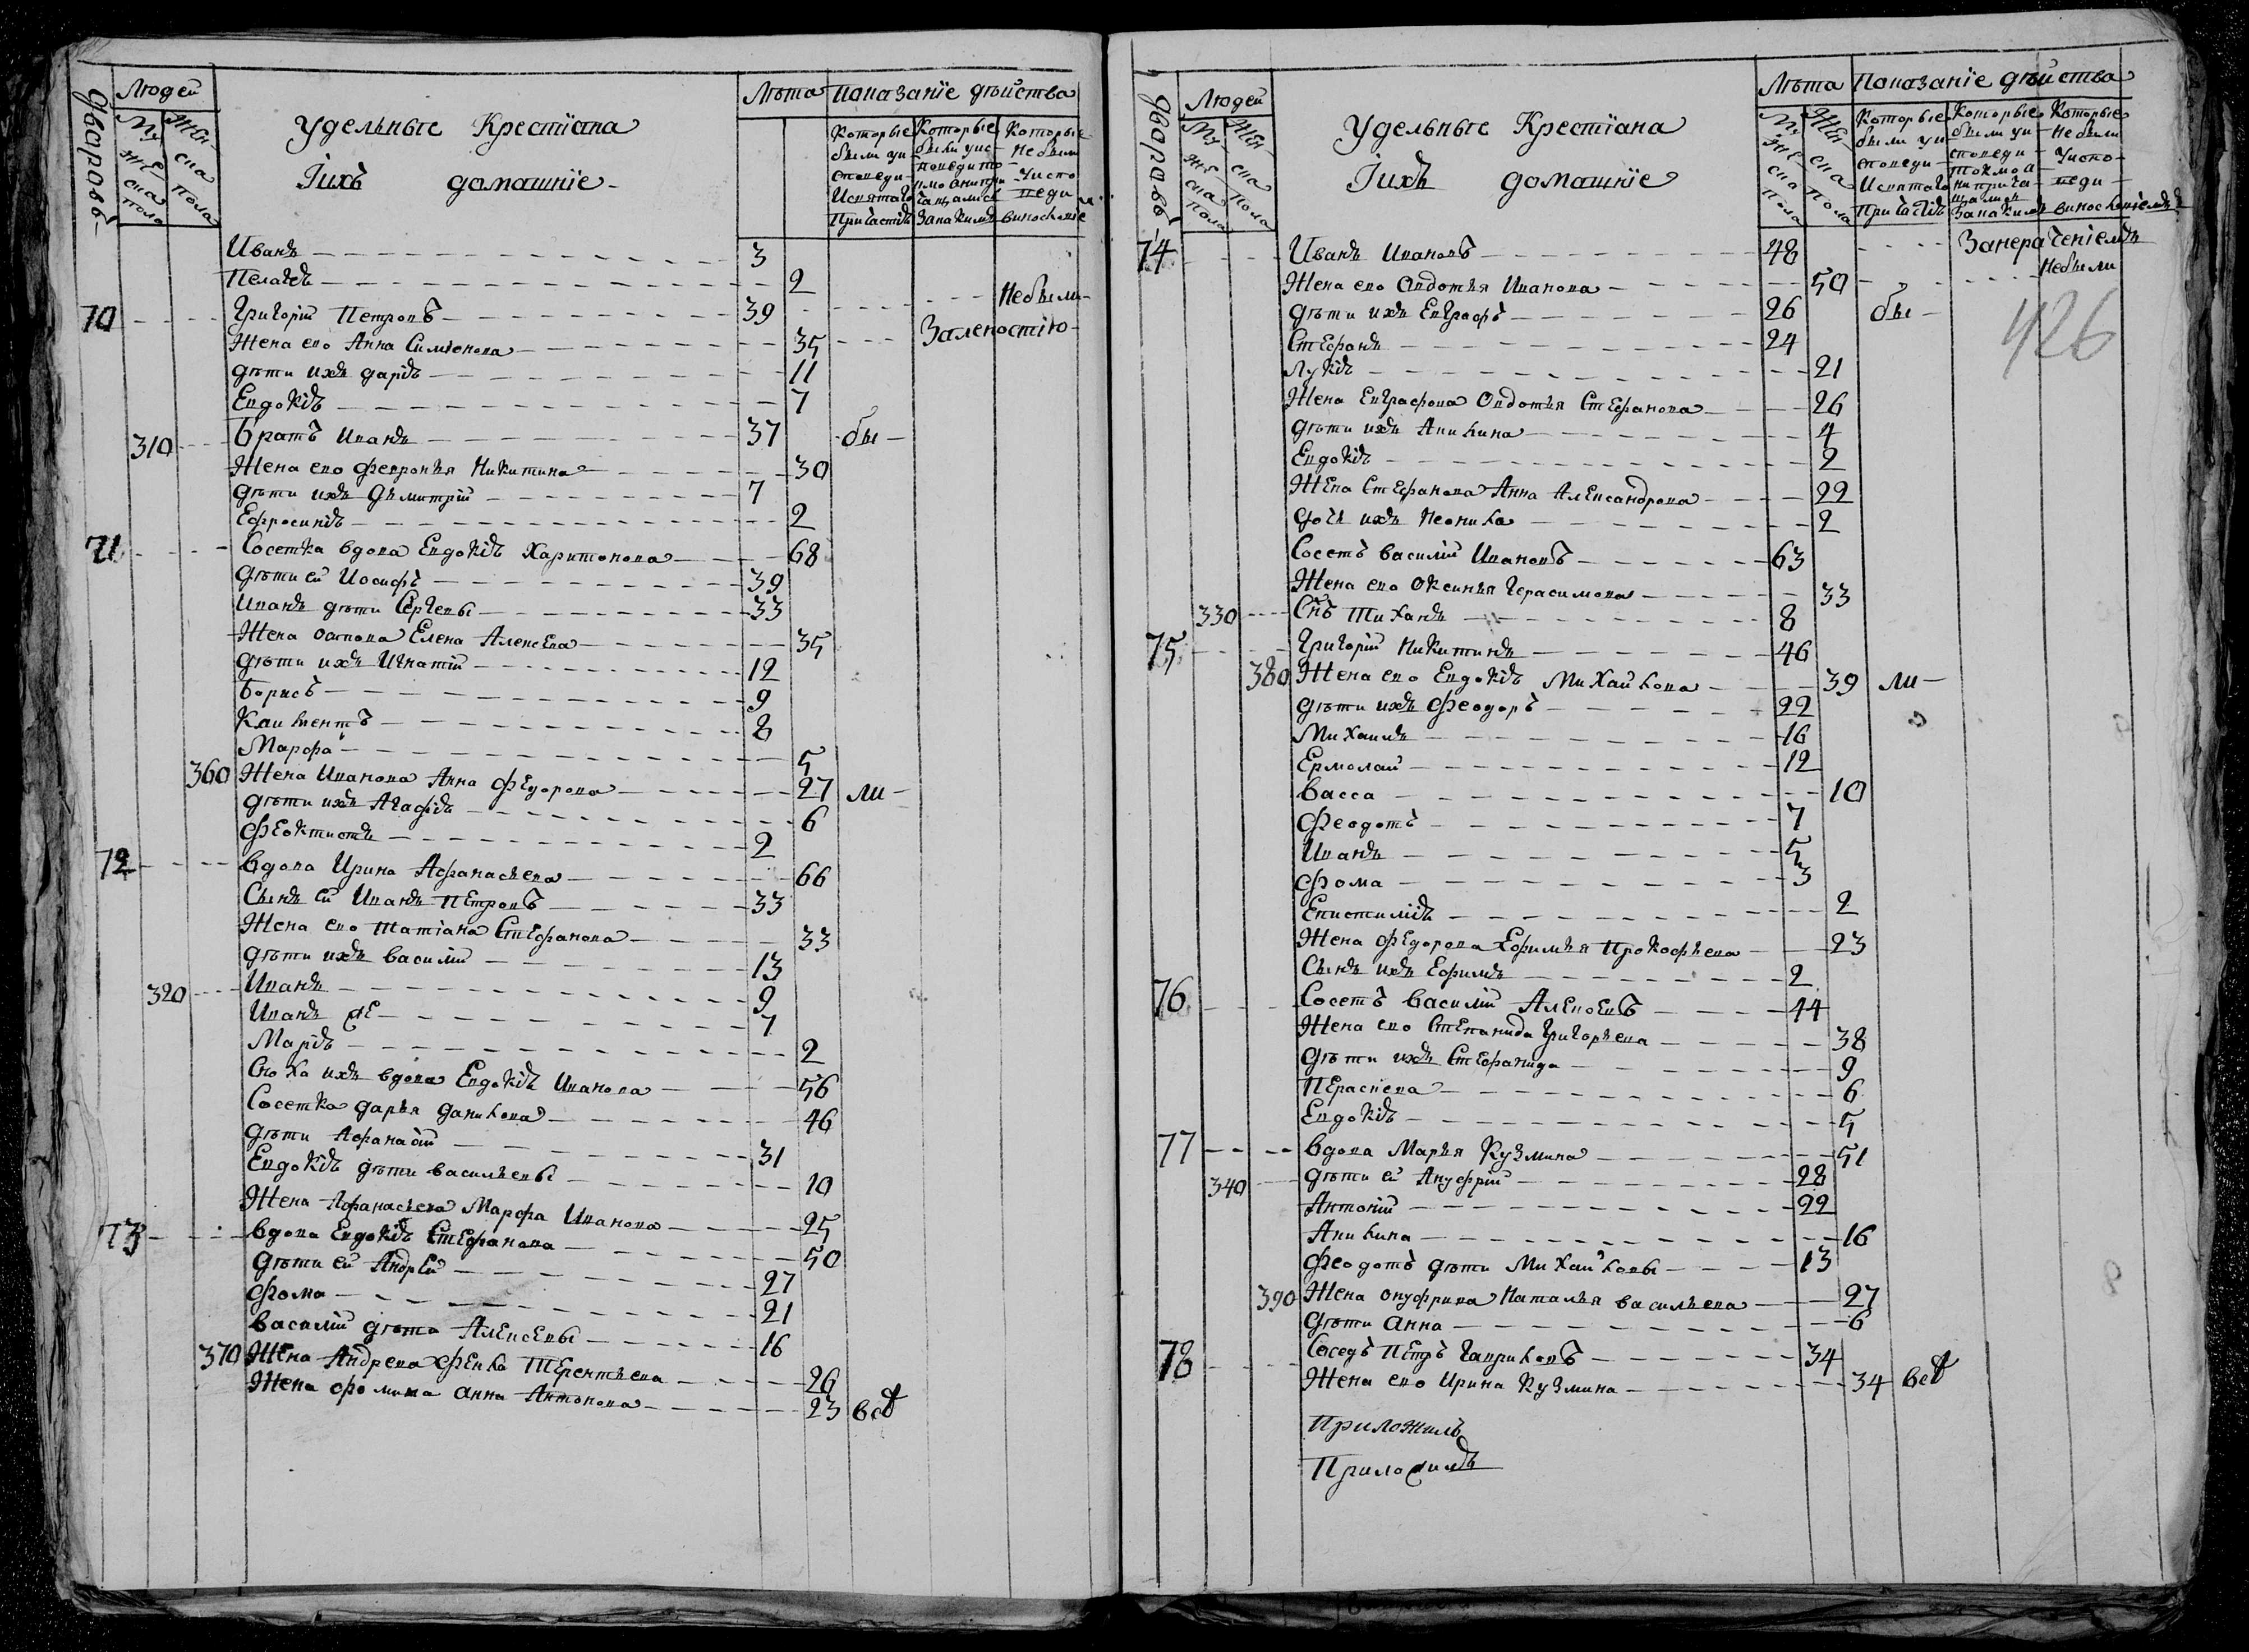 Дворовъ
Людей
Мужеска пола
Женска пола
Удельные Крестїана
Іихъ домашнїе
Лѣта
Показанїе дѣйства
Которые были уисповеди Исвятаго Причастїѧ
Которые были уисповеди токмо
Которые Небыли Уисповеди
Иванъ 3
Пелагеѧ 2
70 Григорїй Петровъ 39 Небыли
Жена его Анна Симѣонова 35 Заленостїю
дѣти ихъ дарїѧ 11
Евдокїѧ 7
310 Братъ Иванъ 37 бы
Жена его Февронья Никитина 30
дѣти ихъ Дьмитрїй 7
Ефросинїѧ 2
71 Сосетка вдова Евдокїѧ Харитонова 68
Дѣти ей Иосифъ 39
Иванъ дѣти Сергевы 33
Жена Осипова Елена Алексева 35
дѣти ихъ Игнатїй 12
Борисъ 9
Климентъ 8
Марфа 5
360 Жена Иванова Анна Федорова 27 ли
дѣти ихъ Агафїѧ 6
Феоктистъ 2
72 Вдова Ирина Афанасьева 66
Сынъ ей Иванъ Петровъ 33
Жена его Татїана Стефанова 33
дѣти ихъ Василїй 13
320 Иванъ 9
Иванъ же 7
Марїѧ 2
Сноха ихъ вдова Евдокїѧ Иванова 56
Сосетка Дарья Данилова 46
Дѣти Афанасїй 31
Евдокїѧ дѣти Васильевы 10
Жена Афанасьева Марфа Иванова 25
73 Вдова Евдокїѧ Стефанова 50
Дѣти ей Андрей 27
Фома 21
Василїй дѣти Алексевы 16
370 Жена Андрева Фекла Терентьева 26
Жена Фомина Анна Антонова 23 всѣ
Дворовъ
Людей
Мужеска пола
Женска пола
Удельные Крестїана
Іихъ домашнїе
Лѣта
Показанїе дѣйства
Мужеска пола
Женска пола
Которые были уисповеди Исвятаго Причастїѧ
Которые были уисповеди токмо а непричащались
Которые Небыли Уисповеди
74 Иванъ Ивановъ 48 Занерачёнїемъ
Жена его Овдотья Иванова 50 Небыли
дѣти ихъ Евграфъ 26 бы
426
Стефанъ 24
Лукїѧ 21
Жена Евграфова Овдотья Стефанова 26
дѣти ихъ Акилина 4
Евдокїѧ 2
Жена Стефанова Анна Александрова 22
дочь ихъ Неонила 2
Сосетъ Василїй Ивановъ 63
Жена его Оксинья Герасимова 33
330 Снъ Тиханъ 8
75 Григорїй Никитинъ 46
380 Жена его Евдокїѧ Михайлова 39 ли
дѣти ихъ Феодоръ 22
Михаилъ 16
Ермолай 12
Васса 10
Феодотъ 7
Иванъ 5
Фома 3
Епистимїѧ 2
Жена Федорова Ефимья Прокофьева 23
Сынъ ихъ Ефимъ 2
76 Сосетъ Василїй Алексевъ 44
Жена его Степанида Григорьева 38
дѣти ихъ Стефанида 9
Пераскева 6
Евдокїѧ 5
77 Вдова Марья Кузмина 51
340 дѣти ей Ануфрїй 28
Антонїй 22
Акилина 16
Феодотъ дѣти Михайловы 13
390 Жена Онуфрива Наталья Васильева 27
дѣти Анна 6
78 Соседъ Петръ Гавриловъ 34
Жена его Ирина Кузмина 34 всѣ
Приложилъ